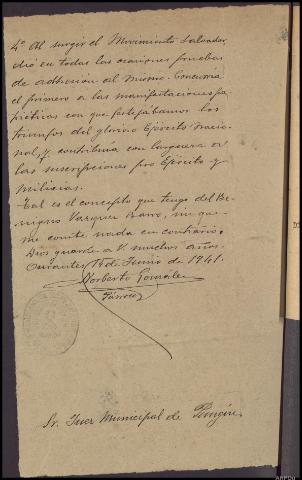 4º Al surgir el Movimiento Salvador,
dió en todas las ocasiones pruebas
de adhesión al mismo. Concurría
el primero a las manifestaciones pa-
trióticas con que festejábamos los
triunfos del glorioso Ejército Nacio-
nal, y contribuía con largueza a
las suscripciones pro Ejército y
Milicias.
Tal es el concepto que tengo del Be-
nigno Vazquez sin que
me conste nada en contrario.
Dios guarde a V. muchos años.
Cervantes, 14 de Junio de 1941.
Norberto González
Párroco
Sr. Juez Municipal de